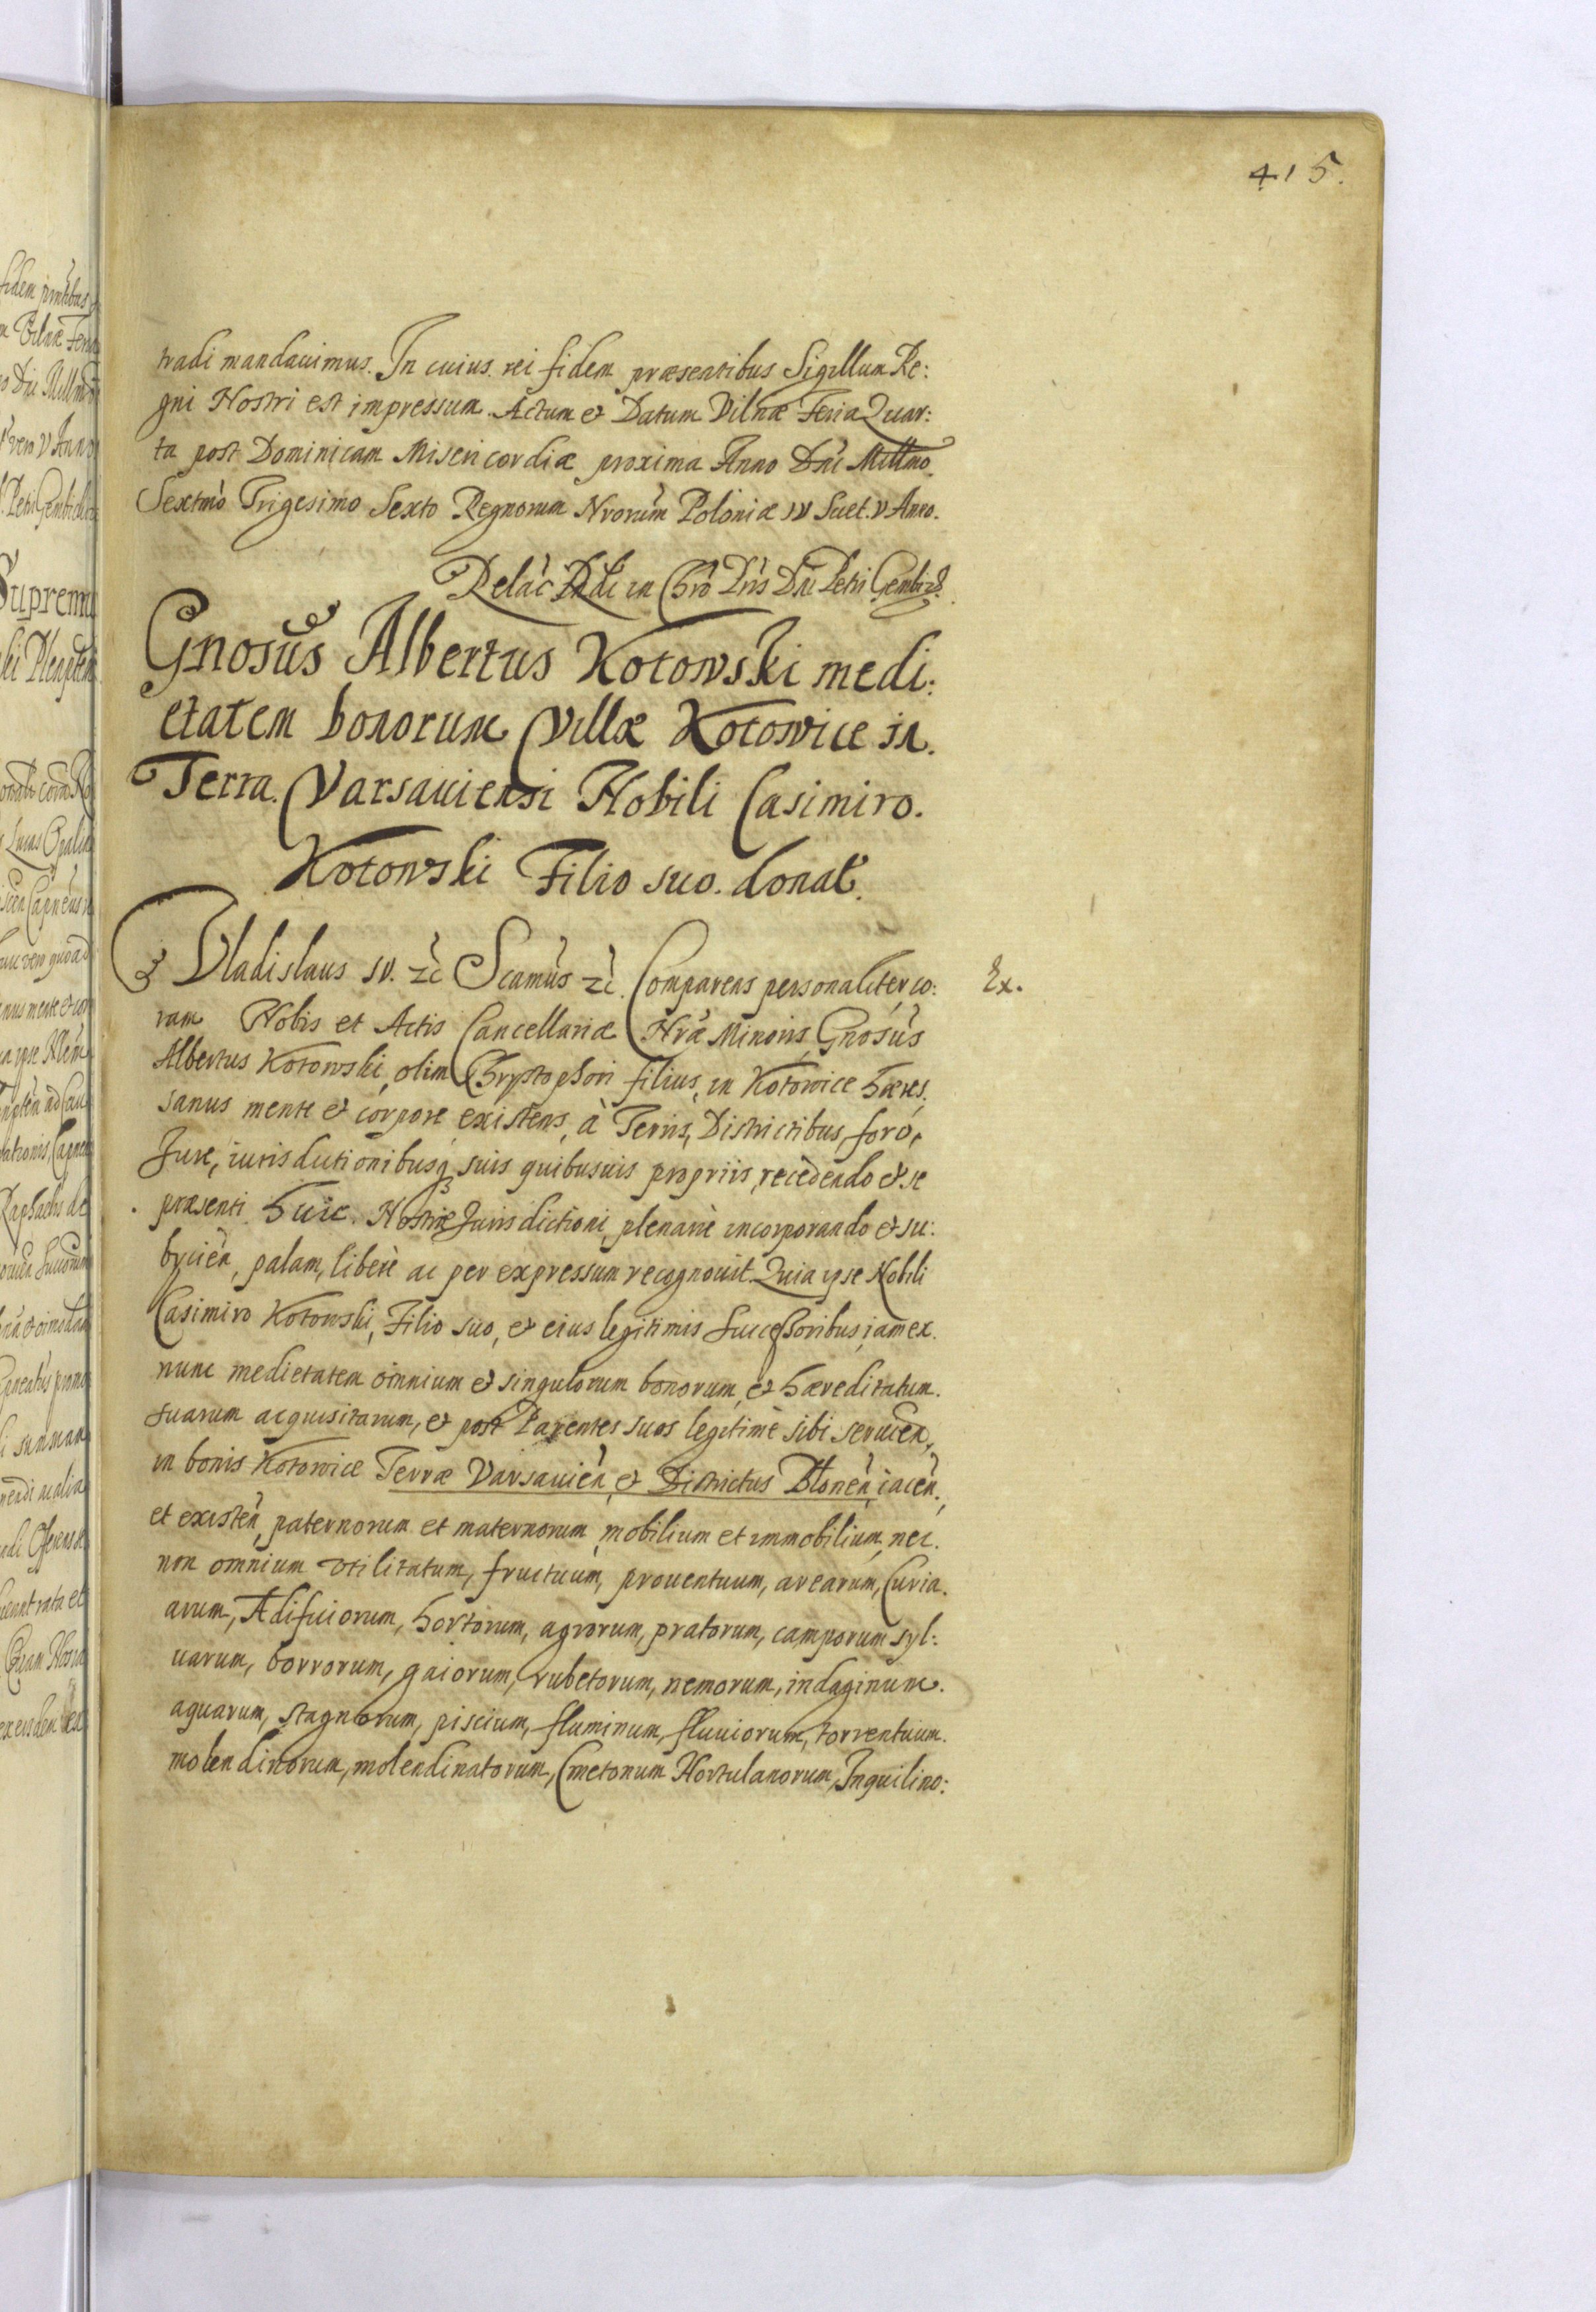 415.
tradi mandauimus. In cuius rei fidem præsentibus Sigillum Re:
gni Nostri est impressum. Actum et Datum Vilnæ Feria Quar:
ta post Dominicam Misericordiæ proxima Anno Dni Millmo
Sextmo Trigesimo Sexto Regnorum Nrorum Poloniæ IV Suet. V Anno.
Relac Rndi in Chro Pris Dni Petri Gembiz.
Gnosus Albertus Kotowski medi:
etatem bonorum Villæ Kotowice in
Terra Varsauiensi Nobili Casimiro
Kotowski Filio suo donat.
Vladislaus IV. zc Scamus zc. Comparens personaliter co:
Ex.
ram Nobis et Actis Cancellariæ Nræ Minoris Gnosus
Albertus Kotowski, olim Chrystophori filius, in Kotowice hæres,
sanus mente et corpore existens, à Terris, Districtibus, foro,
Jure, iurisdictionibusq suis quibusuis propriis, recedendo et se
præsenti huic Nostræ Jurisdictioni, plenariè incorporando et su:
byicien, palam, liberè ac per expressum recognouit. Quia ipse Nobili
Casimiro Kotowski, Filio suo, et eius legitimis successoribus, iam ex
nunc medietatem omnium et singulorum bonorum et hæreditatum
suarum acquisitarum, et post Parentes suos legitimè sibi seruien,
in bonis Kotowice Terræ Varsauien, et Districtus Blonen, iacen,
et existen, paternorum et maternorum, mobilium et immobilium, nec
non omnium vtilitatum, fructuum, prouentuum, arearum, Curia
arum, Ædificiorum, hortorum, agrorum, pratorum, camporum syl:
uarum, borrorum, gaiorum, rubetorum, nemorum, indaginum
aquarum, stagnorum, piscium, fluminum, fluuiorum, torrentium
molendinorum, molendinatorum, Cmetonum Hortulanorum, Inquilino: